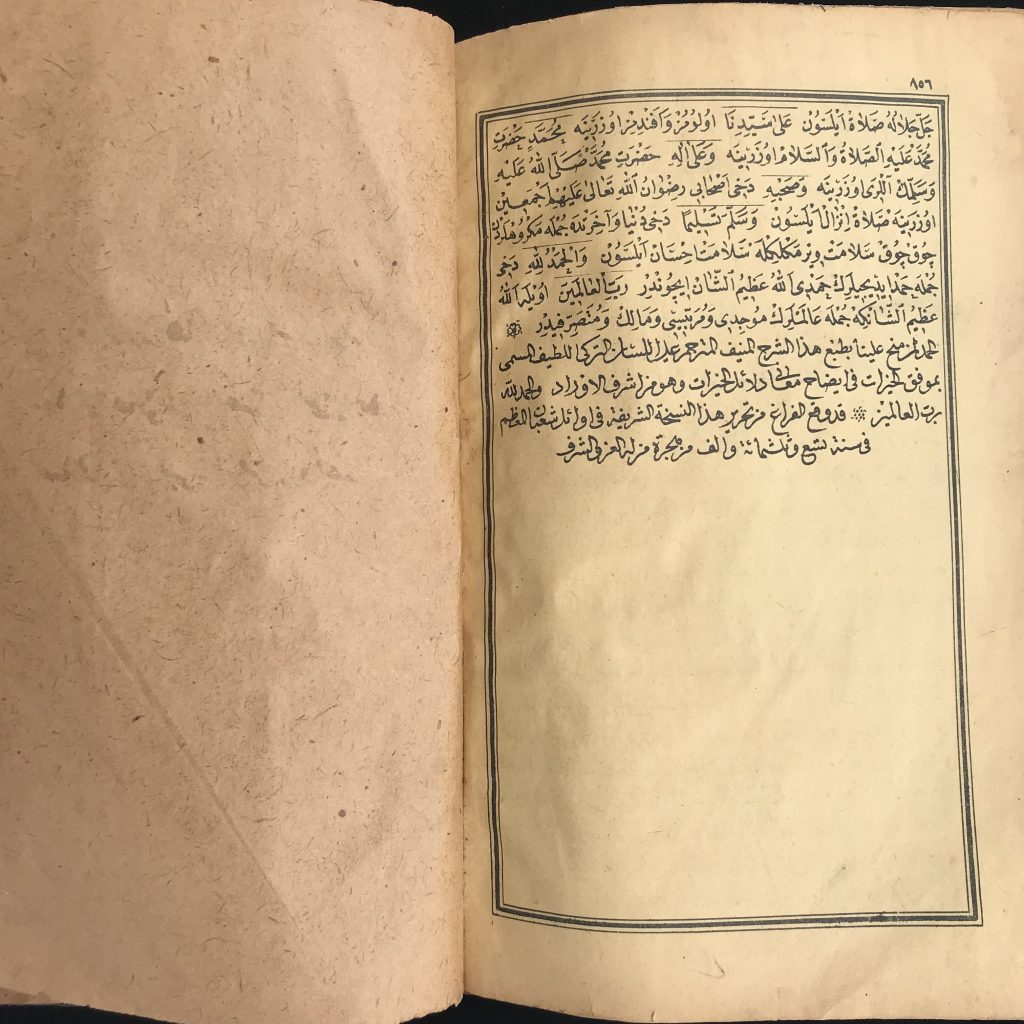 ٨٥٦
جَلَّ جَلَالُهُ صَلَاةْ اَيْلَسُونْ عَلٰى سَيِّدِنَا اولومز وَاَفَنْدِمِزْ اوُزْرَيِنَه مُحَمَّدٍ حَضْرَتِ
مُحَمَّدْ عَلَيْهِ الصَّلَاةُ وَالسَّلَامْ اوُزَرَيِنَه وَعَلٰى اٰلِهِ حَضْرَتِ مُحَمَّدْ صَلَّى اللهُ عَلَيْهِ
وَسَلَّمِكْ اٰللَرِى اوُزَرَيِنَه وَصَحْبِهِ دَخِى اَصْحَابِى رِضْوَانُ اللهِ تَعَالٰى عَلَيْهِمْ اَجْمَعِينْ
اوزرينه صَلَاةْ اِنْزَالْ اَيْلَسُونْ وَسَلَّمَ تَسْلِيمًا دَخِى دُنْيَا وَآخِرْتَدَه جُمْلَه مَكْرُوهْلَرْدَنْ
چوق چوق سَلَامَتْ وِيرْمَكْلِكْلَه سَلَامَتْ اِحْسَانْ اَيْلَسُونْ وَالْحَمْدُ لِلّٰهِ دَخِى
جُمْلَه حَمْدْ اِيدِيجِيلَرِكْ حَمْدِى اللهُ عَظِيمُ الشَّانْ اِيچُونْدُرْ رَبِّ الْعَالَمِينَ اويله اللهُ
عَظِيمُ الشَّانْكِه جُمْلَه عَالَمْلَرِكْ مُوجِدِى وَمُرَبِّيسِى وَمَالِكْ وَمُتَصَرِّفِيدِرْ
الحمد لمن منح علينا بطبع هذا الشرح المنيف المترجم على اللسان التركى اللطيف المسمى
بموفق الخيرات فى ايضاح معانى دلائل الخيرات وهو من اشرف الاوراد والحمد لله
رب العالمين قد وقع الفراغ من تحرير هذا النسخة الشريفة فى اوائل شعبان المعظم
فى سنة تسع وثلثمائة والف من هجرة من له العز والشرف